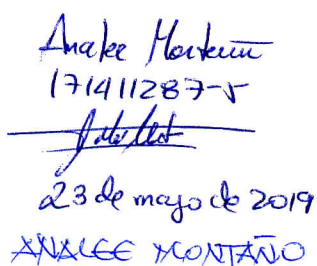 Analee Montaño
171411287-5
23 de mayo de 2019
ANALEE MONTAÑO